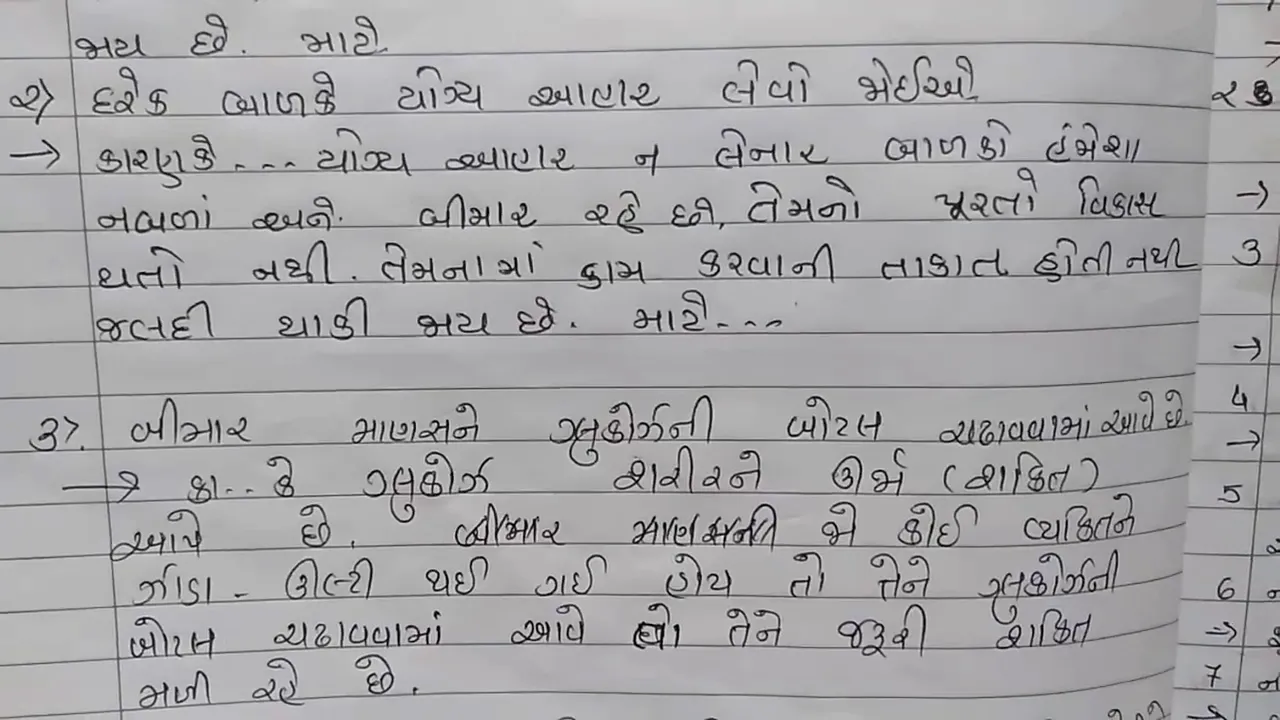 જાય છે. માટે
૨) દરેક બાળકે યોગ્ય આહાર લેવો જોઈએ
→ કારણકે... યોગ્ય આહાર ન લેનાર બાળકો હંમેશા
નબળાં અને. બીમાર રહે છે, તેમનો પૂરતો વિકાસ
થતો નથી. તેમનામાં કામ કરવાની તાકાત હોતી નથી
જલદી થાકી જાય છે. માટે...
૩). બીમાર માણસને ગ્લુકોઝની બોટલ ચઢાવવામાં આવે છે.
→ કા.. કે ગ્લુકોઝ શરીરને ઊર્જા (શકિત)
આપે છે. બીમાર માણસની જો કોઈ વ્યકિતને
ઝાડા - ઊલ્ટી થઈ ગઈ હોય તો તેને ગ્લુકોઝની
બોટલ ચઢાવવામાં આવે તો તેને જરૂરી શકિત
મળી રહે છે.
૨
→
3
→
4
→
5
6
→
7